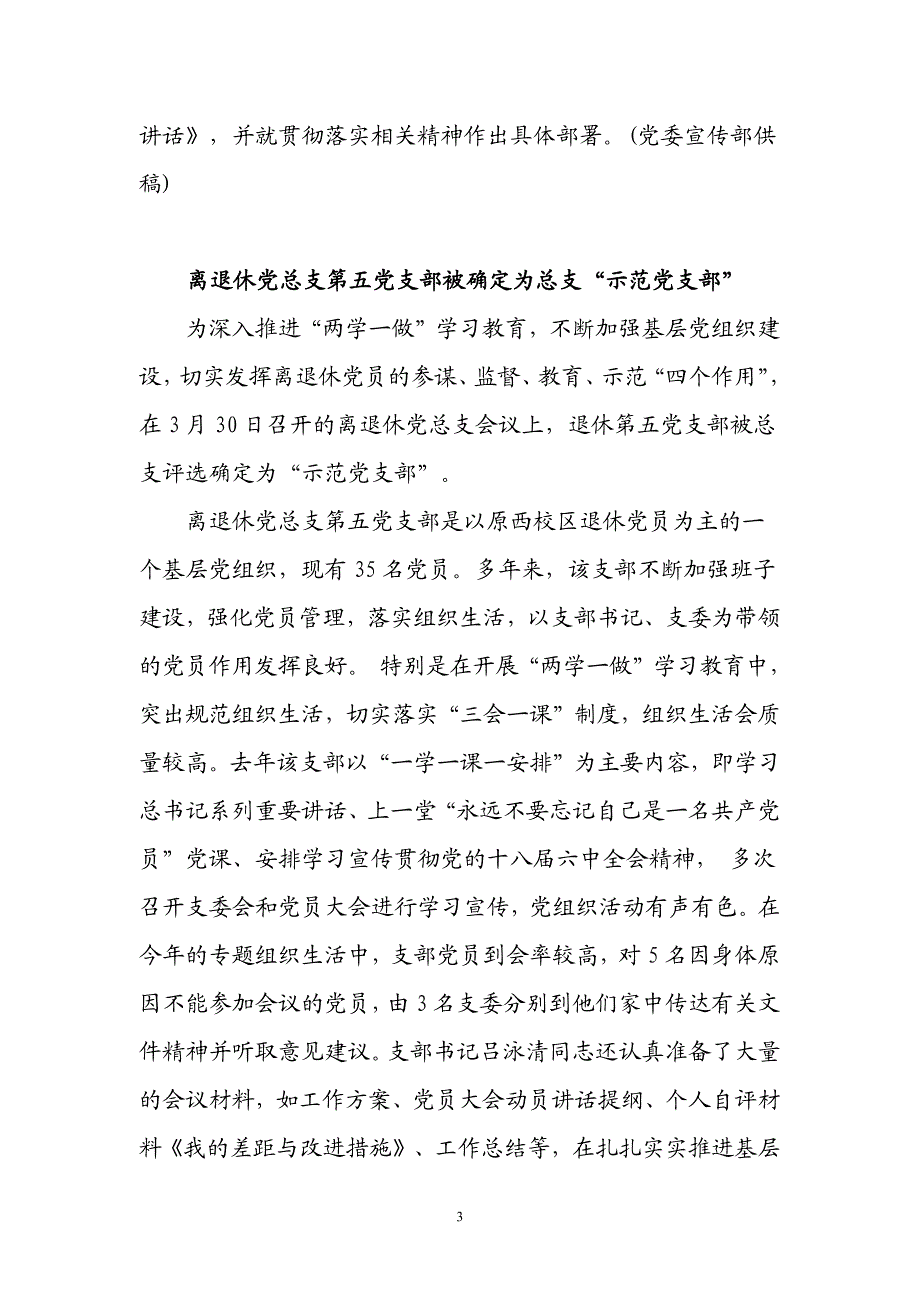 讲话》，并就贯彻落实相关精神作出具体部署。(党委宣传部供
稿)
离退休党总支第五党支部被确定为总支“示范党支部”
为深入推进“两学一做”学习教育，不断加强基层党组织建
设，切实发挥离退休党员的参谋、监督、教育、示范“四个作用”，
在 3 月 30 日召开的离退休党总支会议上，退休第五党支部被总
支评选确定为“示范党支部”。
离退休党总支第五党支部是以原西校区退休党员为主的一
个基层党组织，现有 35 名党员。多年来，该支部不断加强班子
建设，强化党员管理，落实组织生活，以支部书记、支委为带领
的党员作用发挥良好。 特别是在开展“两学一做”学习教育中，
突出规范组织生活，切实落实“三会一课”制度，组织生活会质
量较高。去年该支部以“一学一课一安排”为主要内容，即学习
总书记系列重要讲话、上一堂“永远不要忘记自己是一名共产党
员”党课、安排学习宣传贯彻党的十八届六中全会精神， 多次
召开支委会和党员大会进行学习宣传，党组织活动有声有色。在
今年的专题组织生活中，支部党员到会率较高，对 5 名因身体原
因不能参加会议的党员，由 3 名支委分别到他们家中传达有关文
件精神并听取意见建议。支部书记吕泳清同志还认真准备了大量
的会议材料，如工作方案、党员大会动员讲话提纲、个人自评材
料《我的差距与改进措施》、工作总结等，在扎扎实实推进基层
3